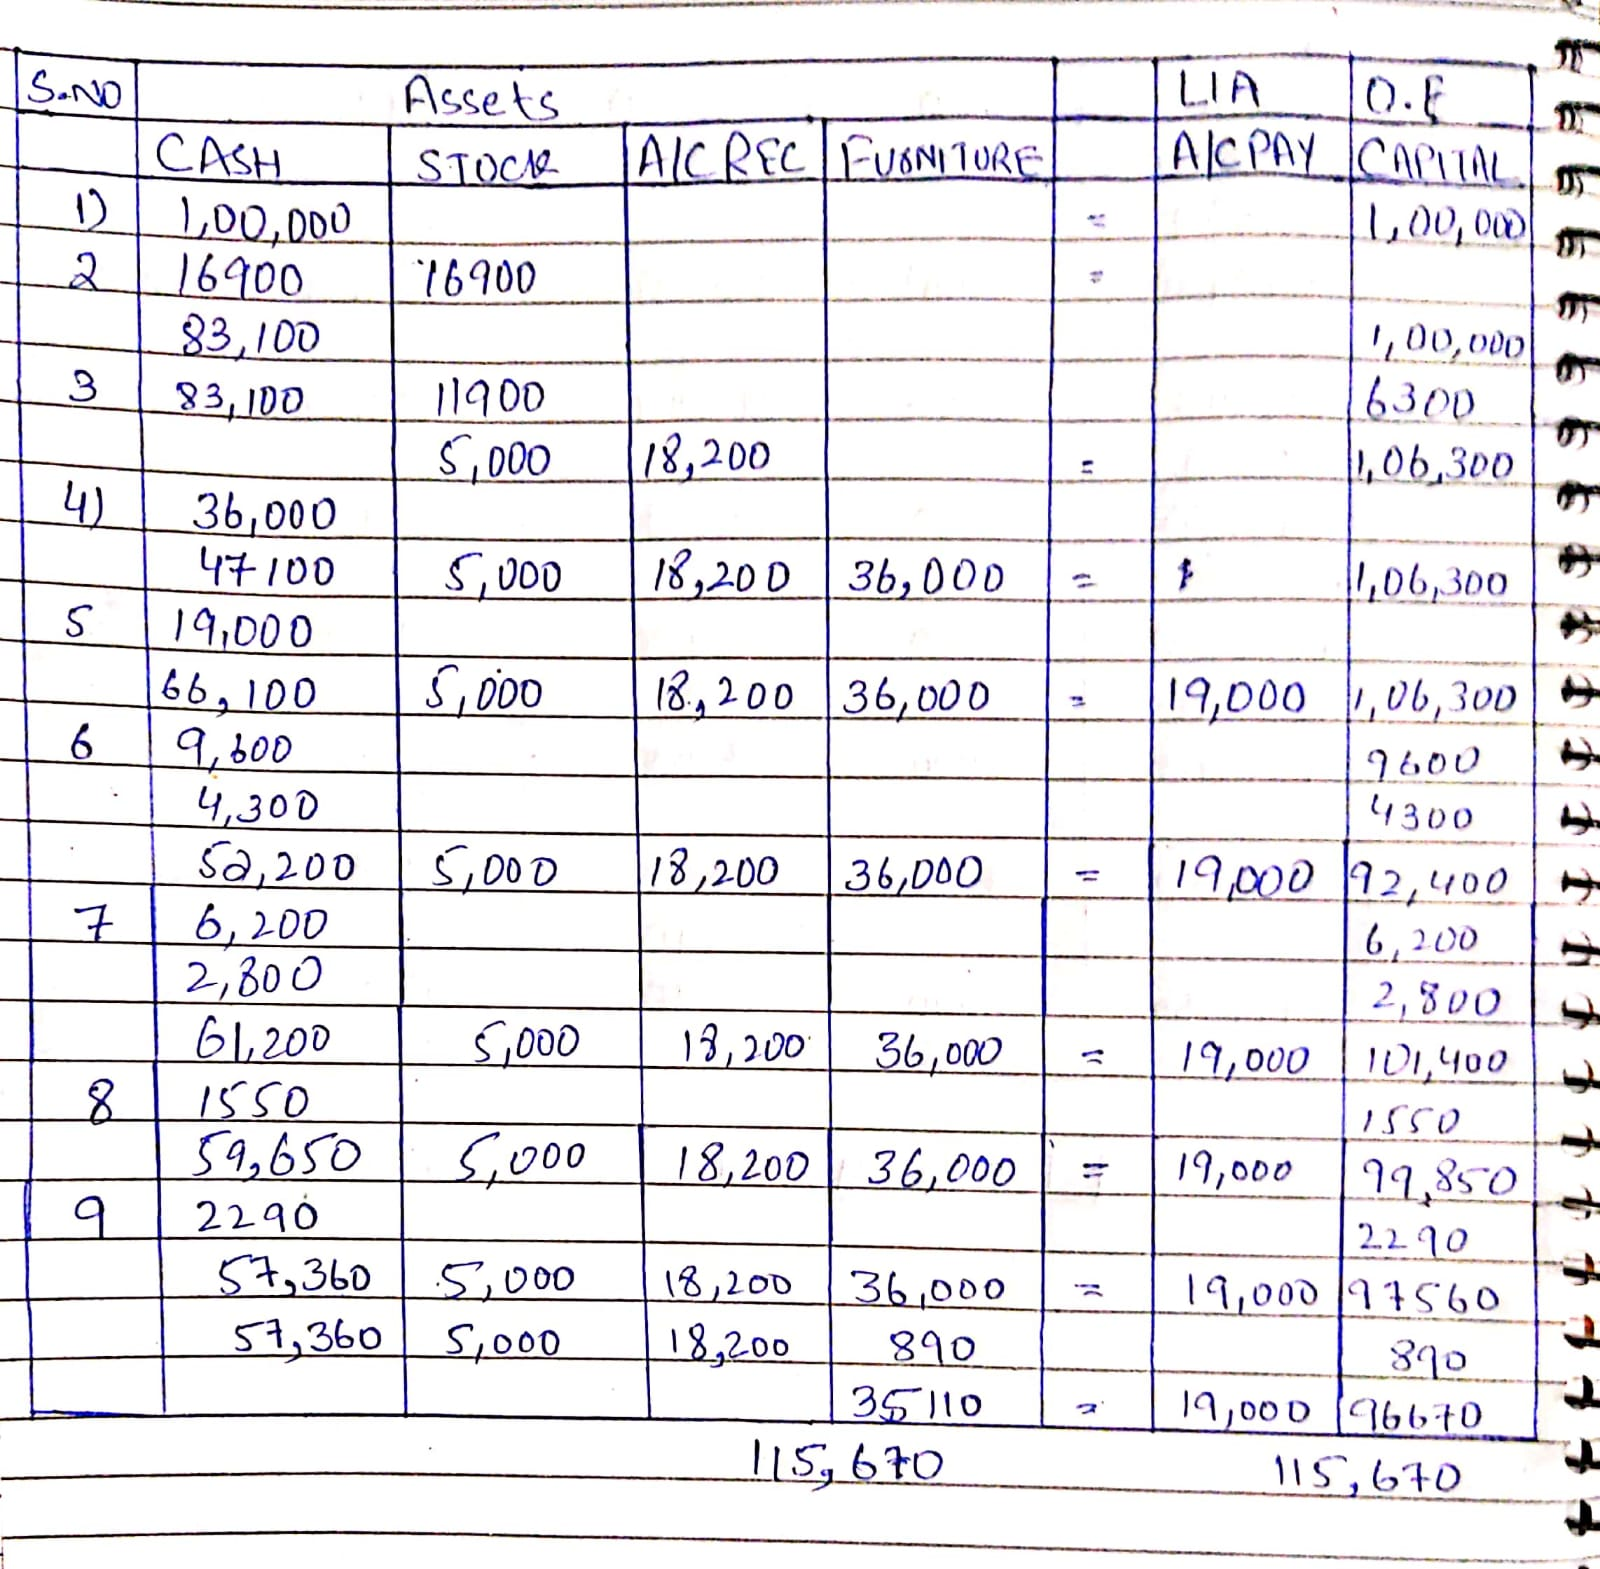 S.NO Assets LIA O.E
CASH STOCK A/C REC FURNITURE A/C PAY CAPITAL
1) 1,00,000 = 1,00,000
2 16900 16900 =
83,100 1,00,000
3 83,100 11900 6300
5,000 18,200 = 1,06,300
4) 36,000
47100 5,000 18,200 36,000 = 1,06,300
5 19,000
66,100 5,000 18,200 36,000 = 19,000 1,06,300
6 9,600 9600
4,300 4300
52,200 5,000 18,200 36,000 = 19,000 92,400
7 6,200 6,200
2,800 2,800
61,200 5,000 18,200 36,000 = 19,000 101,400
8 1550 1550
59,650 5,000 18,200 36,000 = 19,000 99,850
9 2290 2290
57,360 5,000 18,200 36,000 = 19,000 97560
57,360 5,000 18,200 890 890
35110 = 19,000 96670
115,670 115,670